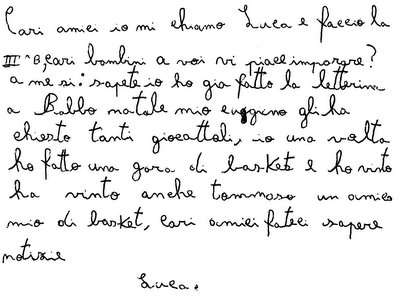 Cari amici io mi chiamo Luca e faccio la
III^B, cari bambini a voi vi piace imparare?
a me si: sapete io ho gia fatto la letterina
a Babbo natale mio cuggino gli ha
chiesto tanti giocattoli, io una volta
ho fatto una gara di basket e ho vinto
ha vinto anche tommaso un amico
mio di basket, cari amici fateci sapere
notizie
Luca.